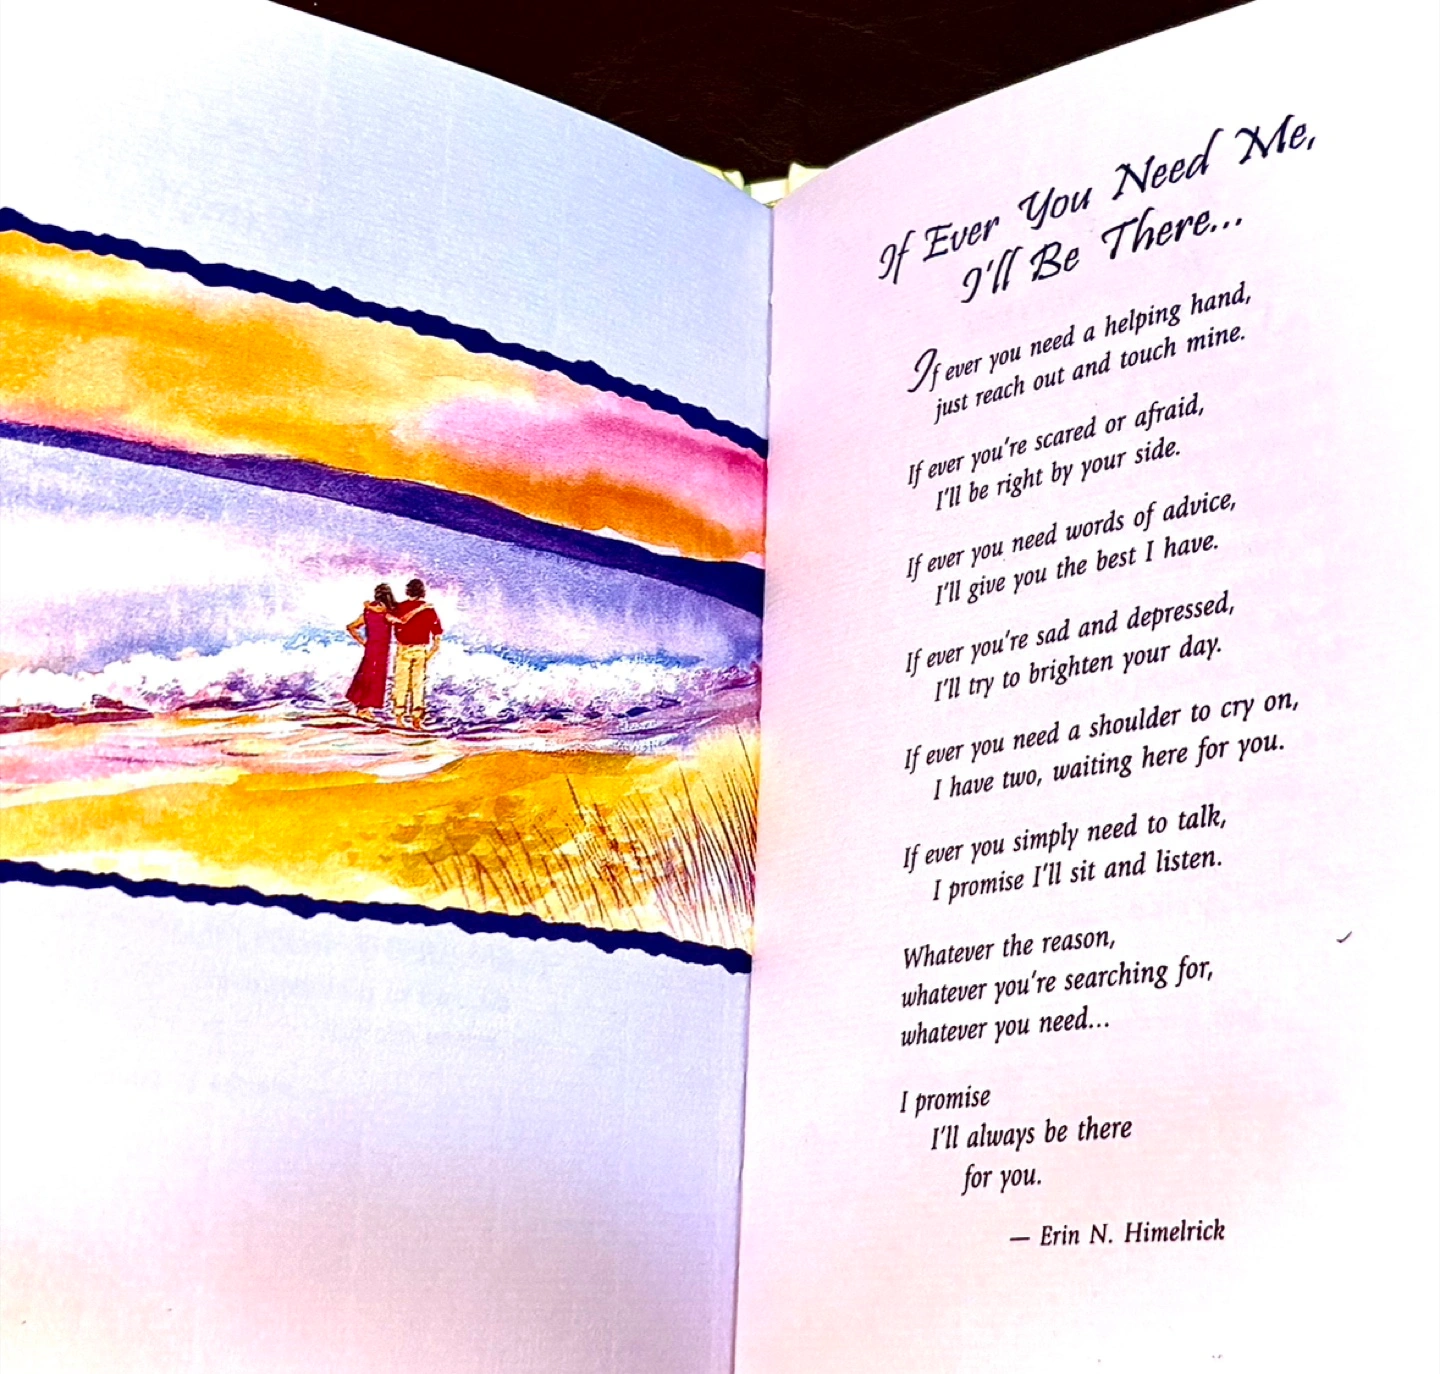 If Ever You Need Me,
I'll Be There...
If ever you need a helping hand,
just reach out and touch mine.
If ever you're scared or afraid,
I'll be right by your side.
If ever you need words of advice,
I'll give you the best I have.
If ever you're sad and depressed,
I'll try to brighten your day.
If ever you need a shoulder to cry on,
I have two, waiting here for you.
If ever you simply need to talk,
I promise I'll sit and listen.
Whatever the reason,
whatever you're searching for,
whatever you need...
I promise
I'll always be there
for you.
— Erin N. Himelrick